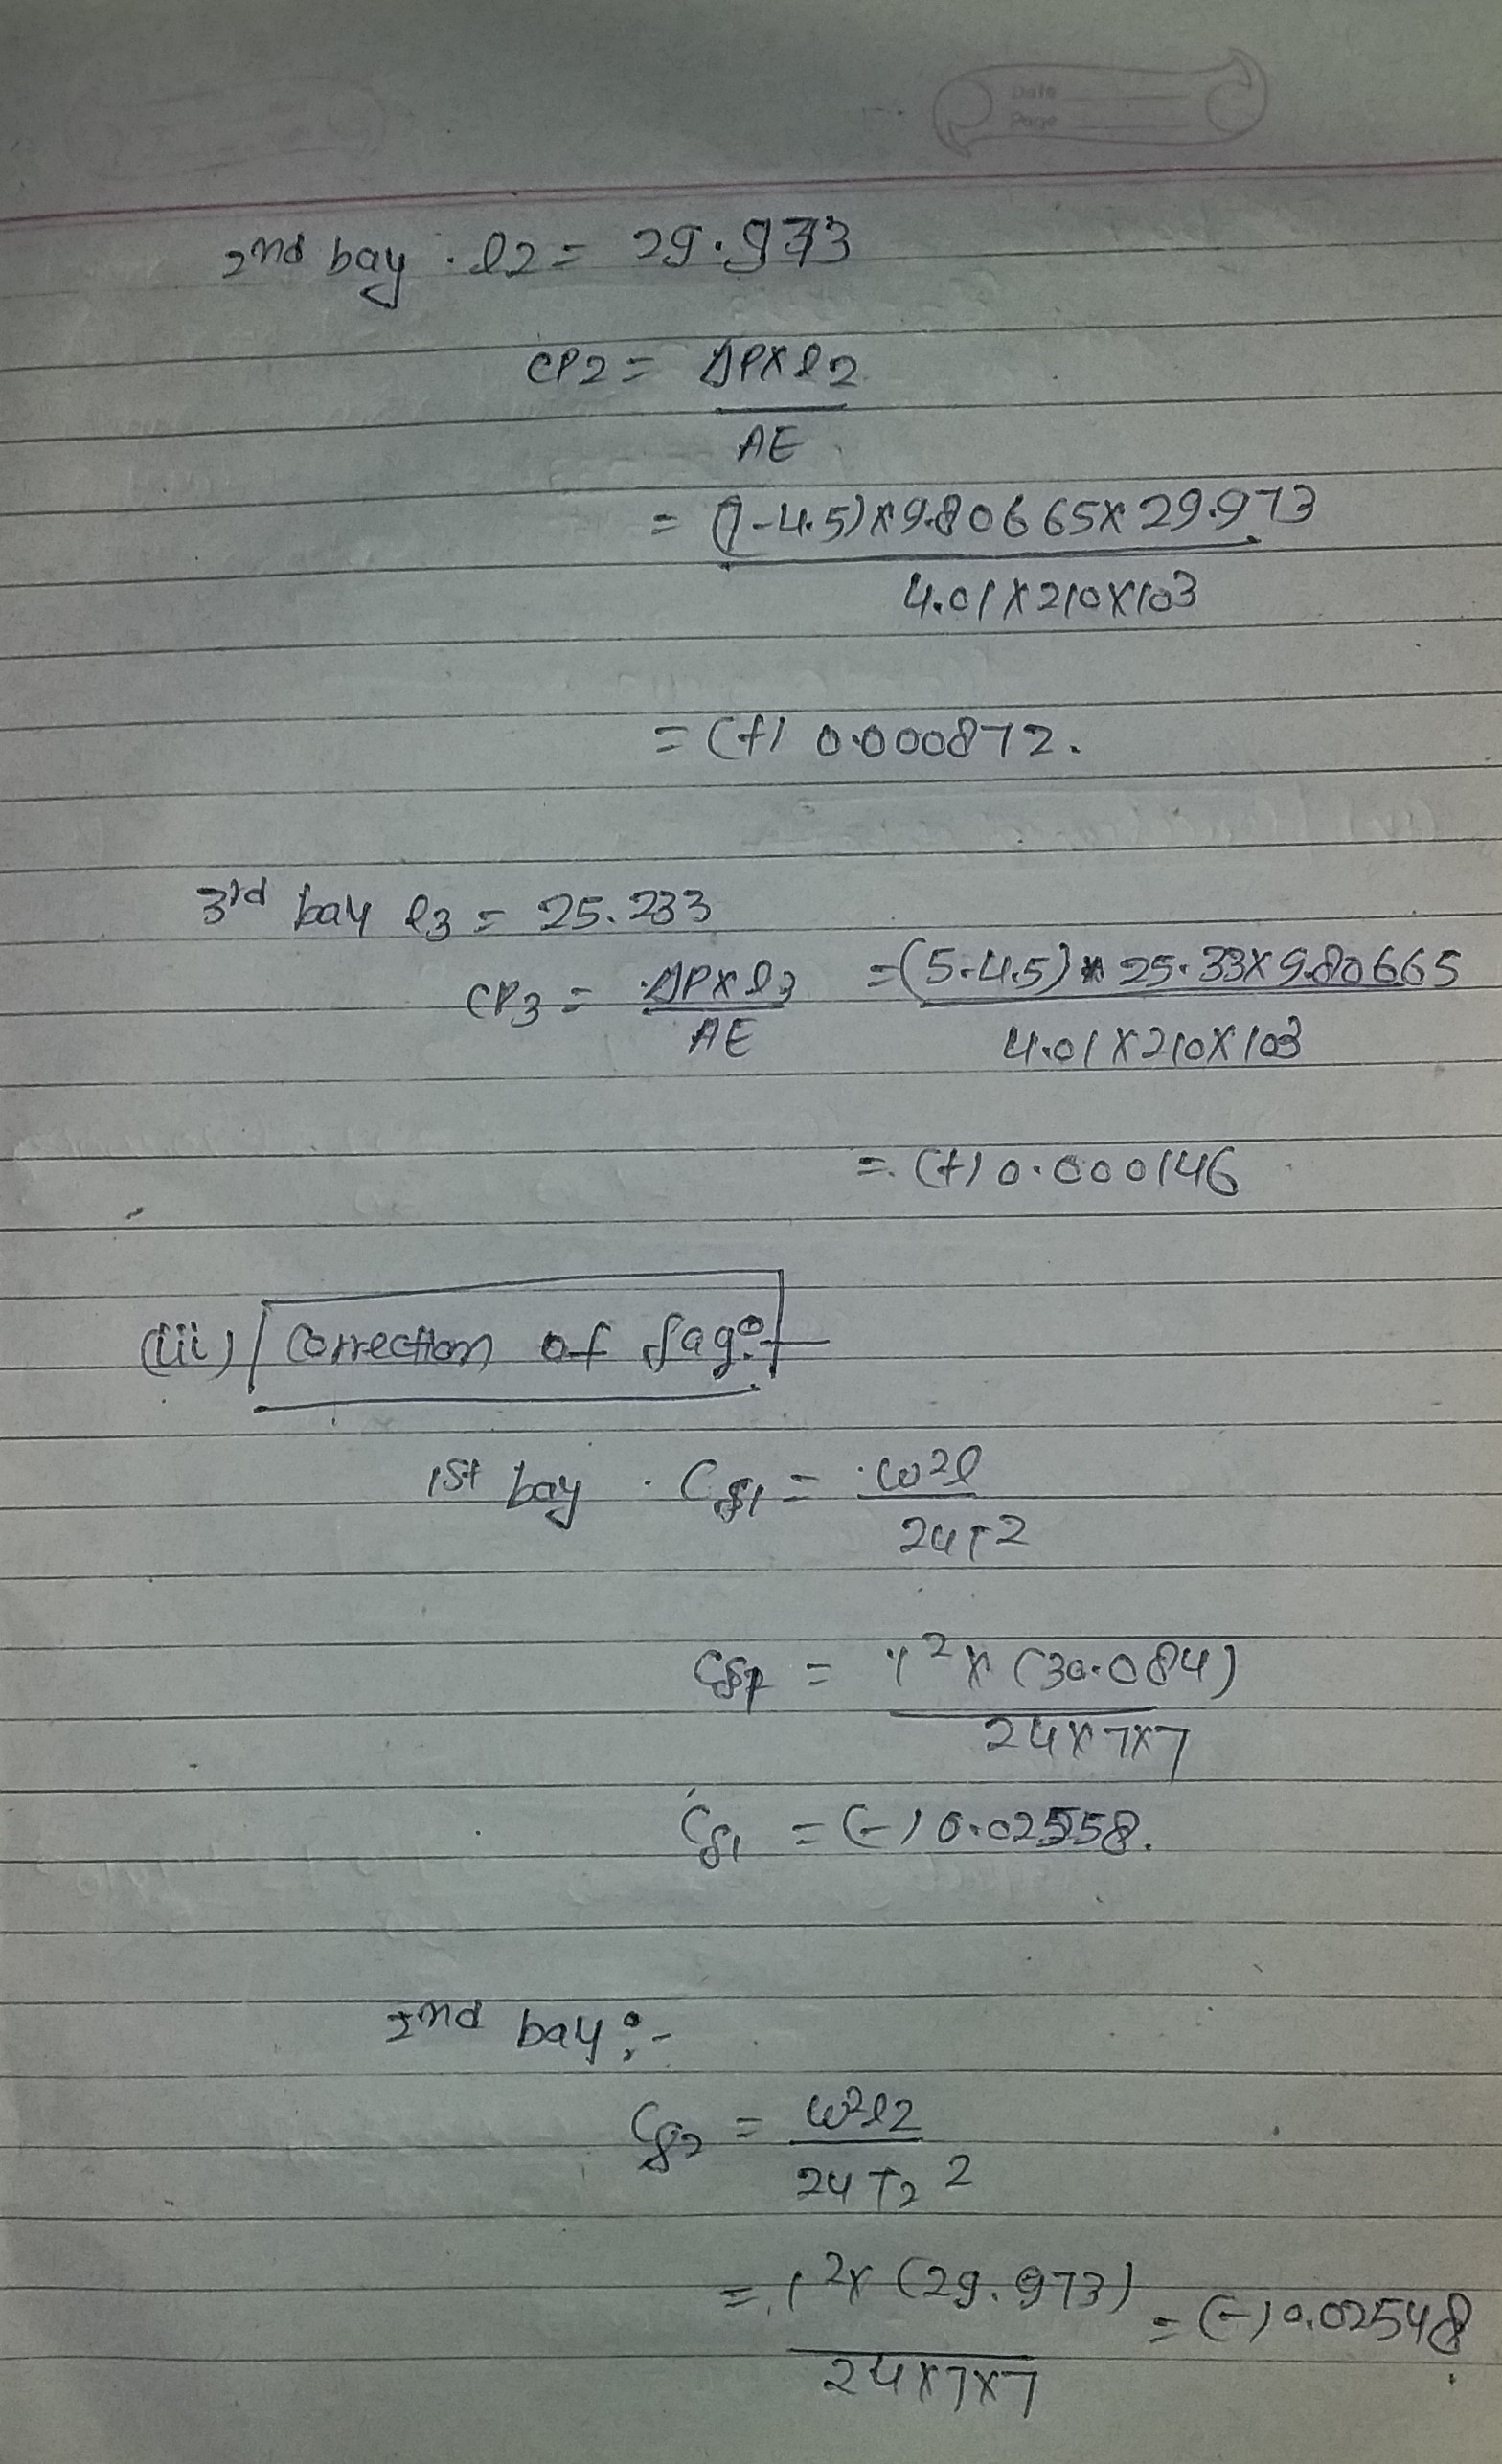 Date
Page
2nd bay . l2 = 29.973
CP2 = ΔP×l2
AE
= (7-4.5)×9.80665×29.973
4.01×210×103
= (+) 0.000872.
3rd bay l3 = 25.233
CP3 = ΔP×l3 = (5-4.5)×25.33×9.80665
AE 4.01×210×103
= (+) 0.000146
(iii) Correction of sag:-
1st bay . Cs1 = w2l
24T2
Cs1 = 12 × (30.084)
24×7×7
Cs1 = (-) 0.02558.
2nd bay :-
Cs2 = w2l2
24 T2 2
= 12× (29.973) = (-) 0.02548
24×7×7